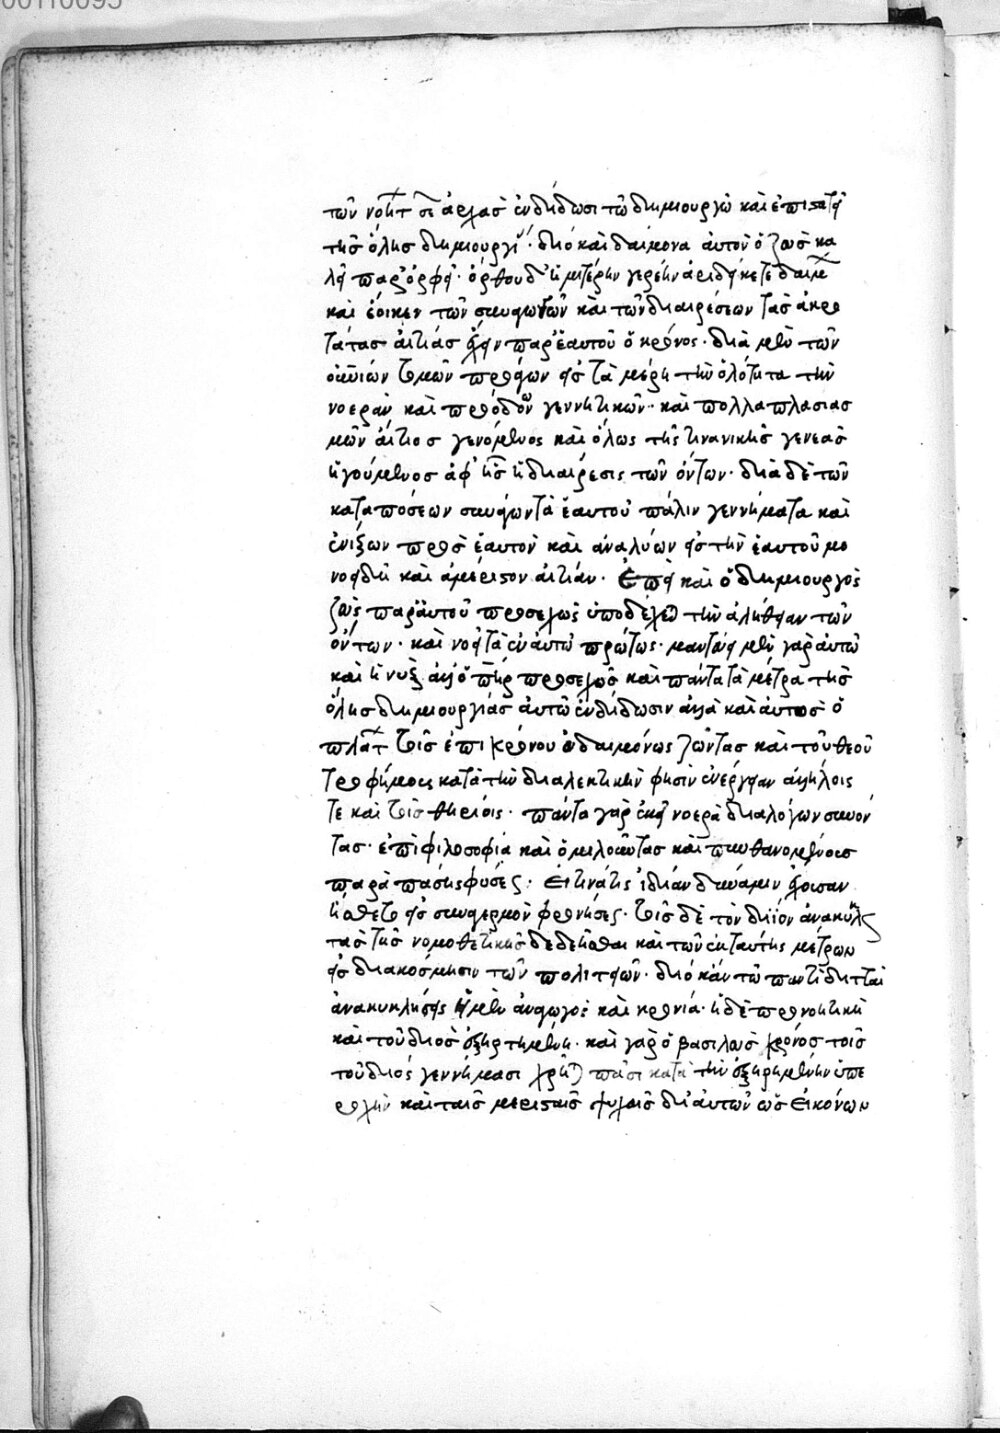 τῶν νοητ τὰς ἀρχὰς ἐνδίδωσι τῷ δημιουργῷ καὶ ἐπιστατεῖ
τῆς ὅλης δημιουργί· διὸ καὶ δαίμονα αὐτὸν ὁ ζεὺς κα
λεῖ παρ' ὀρφεῖ· ὄρθου δ' ἡμετέρην γενεὴν ἀριδείκετε δαιμ
καὶ ἔοικεν τῶν συναγωγῶν καὶ τῶν διαιρέσεων τὰς ἀκρο
τάτας αἰτίας ἔχειν παρ' ἑαυτοῦ ὁ κρόνος· διὰ μὲν τῶν
οὐρανίων τομῶν προάγων εἰς τὰ μέρη τὴν ὁλότητα τὴν
νοερὰν καὶ προόδων γεννητικῶν· καὶ πολλαπλασιασ
μῶν αἴτιος γενόμενος καὶ ὅλως τῆς τιτανικῆς γενεᾶς
ἡγούμενος ἀφ' ἧς ἡ διαίρεσις τῶν ὄντων· διὰ δὲ τῶν
καταπόσεων συνάγων τὰ ἑαυτοῦ πάλιν γεννήματα καὶ
ἑνίζων πρὸς ἑαυτὸν καὶ ἀναλύων εἰς τὴν ἑαυτοῦ μο
νοειδῆ καὶ ἀμέριστον αἰτίαν· ἐπεὶ καὶ ὁ δημιουργὸς
ζεὺς παρ' αὐτοῦ προσεχῶς ὑποδέχεται τὴν ἀλήθειαν τῶν
ὄντων· καὶ νοεῖ τὰ ἐν αὐτῷ πρώτως· μαντεύει μὲν γὰρ αὐτῷ
καὶ ἡ νὺξ ἀλλ' ὁ πηρ προσεχῶς καὶ πάντα τὰ μέτρα τῆς
ὅλης δημιουργίας αὐτῷ ἐνδίδωσιν ἀλλὰ καὶ αὐτὸς ὁ
πλατ τοὺς ἐπὶ κρόνου εὐδαιμόνως ζῶντας καὶ τοῦ θεοῦ
τροφίμους κατὰ τὴν διαλεκτικὴν φησὶν ἐνέργειαν ἀλλήλοις
τε καὶ τοῖς θηρίοις· πάντα γὰρ ἐκεῖ νοερὰ διαλόγων συνόν
τας· ἐπὶ φιλοσοφία καὶ ὁμιλοῦντας καὶ πυνθανομένους
παρὰ πάσης φύσεως· εἴ τινά τις ἰδίαν δύναμιν ἔχουσαν
ᾔσθετο εἰς συναγερμὸν φρονήσεως· τοὺς δὲ τὸν δίιον ἀνακυκλ
τὰς τῆς νομοθετικῆς δεδεῆσθαι καὶ τῶν ἐκ ταύτης μέτρων
εἰς διακόσμησιν τῶν πολιτειῶν· διὸ κἀν τῷ παντὶ διτταὶ
ἀνακυκλήσεις ἡ μὲν ἀναγωγὸς καὶ κρονία· ἡ δὲ προνοητικὴ
καὶ τοῦ διὸς ἐξηρτημένη· καὶ γὰρ ὁ βασιλεὺς κρόνος τοῖς
τοῦ διός γεννήμασι χρῆται πᾶσι κατὰ τὴν ἐξῃρημένην ὑπε
ροχὴν καὶ ταῖς μερισταῖς ψυχαῖς δι' αὐτῶν ὡς εἰκόνων